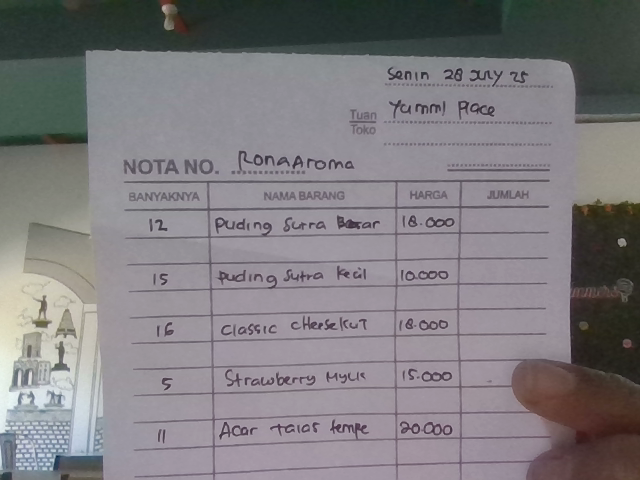 Senin 28 JULY 25
Tuan Yummi Place
Toko
NOTA NO. RonaAroma
BANYAKNYA NAMA BARANG HARGA JUMLAH
12 Puding Sutra Besar 18.000
15 Puding Sutra kecil 10.000
16 Classic cheesekut 18.000
5 Strawberry Mylk 15.000
11 Acar talas tempe 20.000